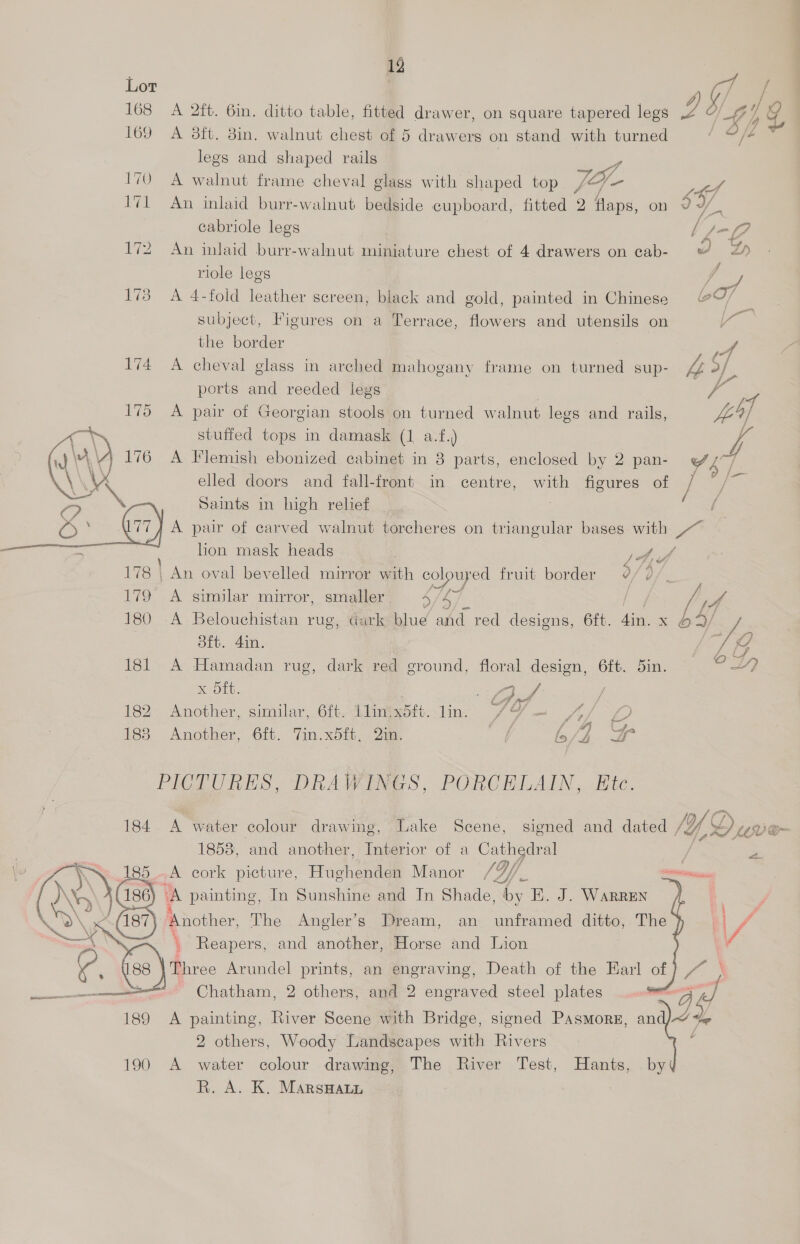 12
Lot
168 A 2ft. 6in. ditto table, fitted drawer, on square tapered legs
169 A 3ft. 3in. walnut chest of 5 drawers on stand with turned
legs and shaped rails
170 A walnut frame cheval glass with shaped top
171 An inlaid burr-walnut bedside cupboard, fitted 2 flaps, on
cabriole legs
172 An inlaid burr-walnut miniature chest of 4 drawers on cab-
riole legs
173 A 4-fold leather screen, black and gold, painted in Chinese
subject, Figures on a Terrace, flowers and utensils on
the border
174 A cheval glass in arched mahogany frame on turned sup-
ports and reeded legs
175 A pair of Georgian stools on turned walnut legs and rails,
stuffed tops in damask (1 a.f.)
176 A Flemish ebonized cabinet in 3 parts, enclosed by 2 pan-
elled doors and fall-front in centre, with figures of
Saints in high relief
177 A pair of carved walnut torcheres on triangular bases with
lion mask heads
178 An oval bevelled mirror with coloured fruit border
179 A similar mirror, smaller
180 A Belouchistan rug, dark blue and red designs, 6ft. 4in. x
3ft. 4in.
181 A Hamadan rug, dark red ground, floral design, 6ft. 5in.
x 5ft.
182 Another, similar, 6ft. 11in.x5ft. 1in.
183 Another, 6ft. 7in.x5ft. 2in.
PICTURES, DRAWINGS, PORCELAIN, Etc.
184 A water colour drawing, Lake Scene, signed and dated
1853, and another, Interior of a Cathedral
185 A cork picture, Hughenden Manor
186 A painting, In Sunshine and In Shade, by E. J. WARREN
187 Another, The Angler's Dream, an unframed ditto, The
Reapers, and another, Horse and Lion
188 Three Arundel prints, an engraving, Death of the Earl of
Chatham, 2 others, and 2 engraved steel plates
189 A painting, River Scene with Bridge, signed PASMORE, and
2 others, Woody Landscapes with Rivers
190 A water colour drawing, The River Test, Hants, by
R. A. K. MARSHALL